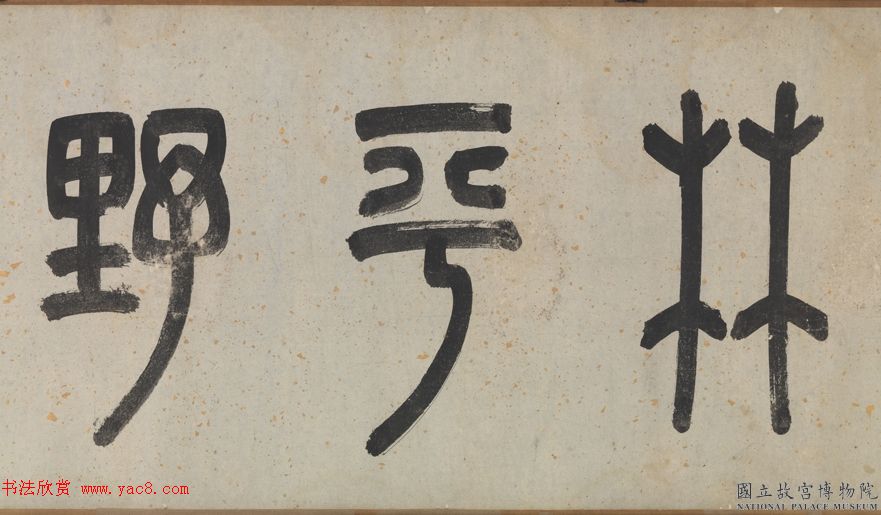 林平野
书法欣赏 www.yac8.com
國立故宮博物院
NATIONAL PALACE MUSEUM